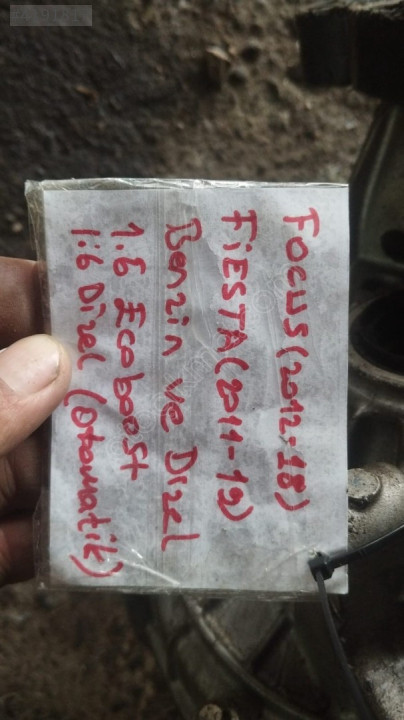 FOCUS (2012-18)
FiESTA (2011-19)
Benzin ve Dizel
1.6 Ecoboost
1.6 Dizel (Otomatik)